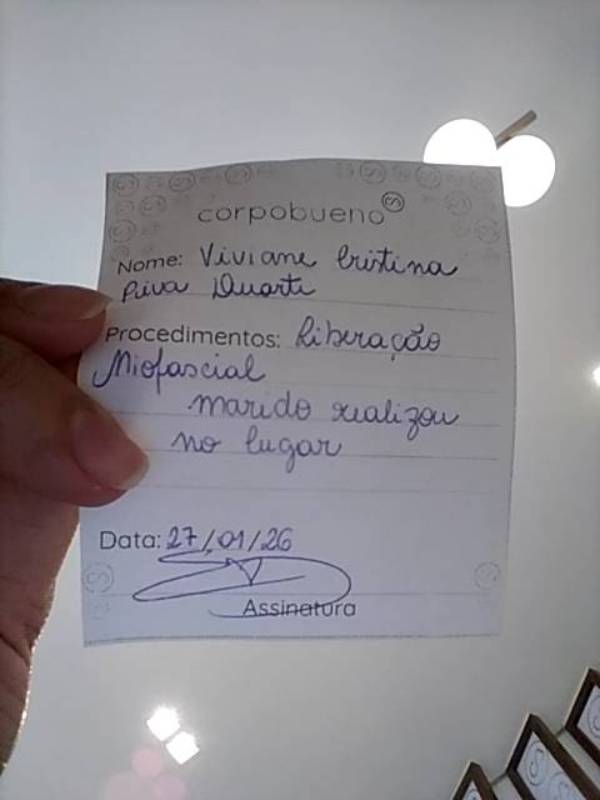 corpobueno
Nome: Viviane Cristina
Piva Duarte
Procedimentos: Liberação
Miofascial
marido realizou
no lugar
Data: 27/01/26
Assinatura